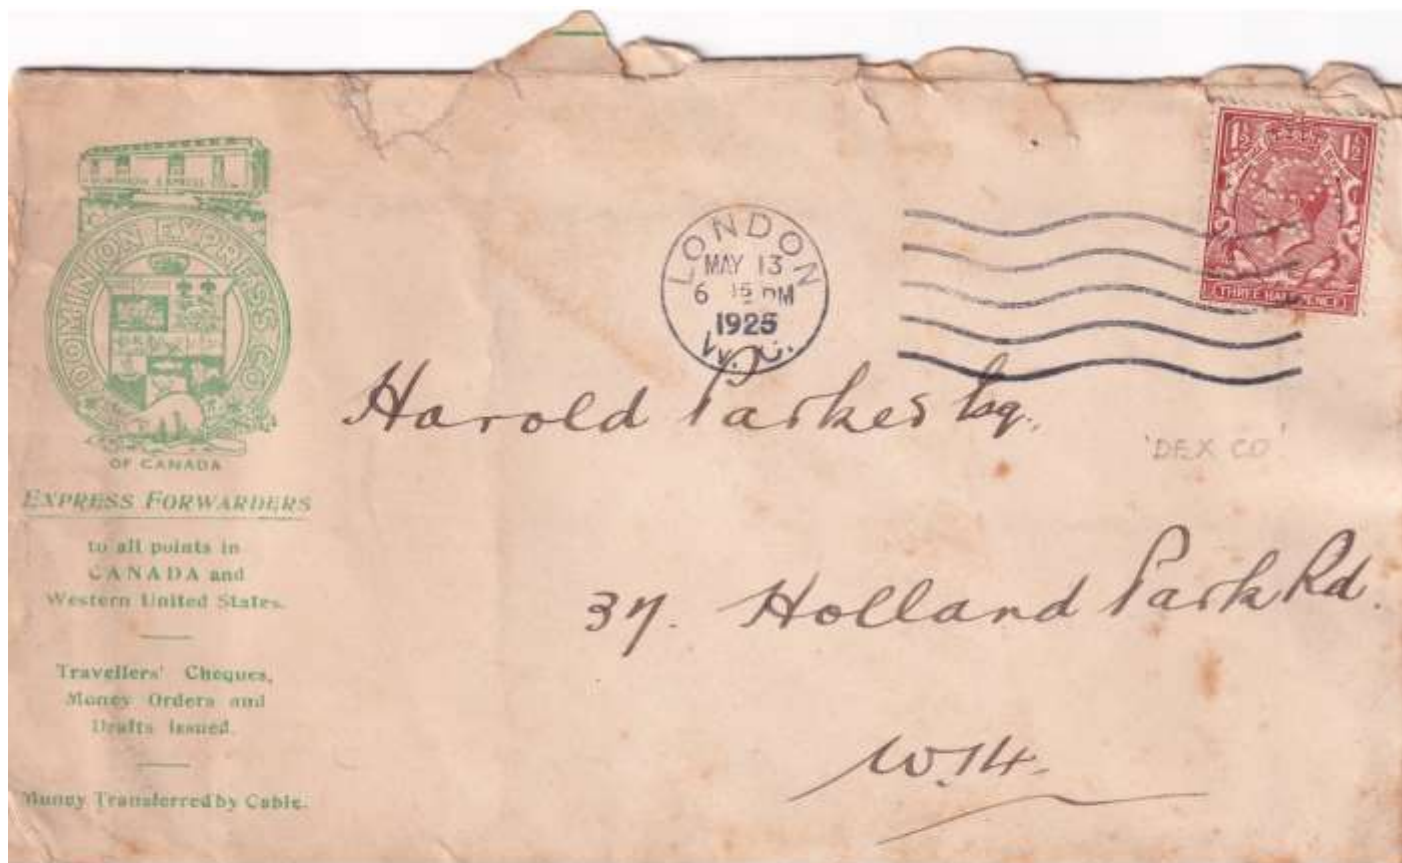 DOMINION EXPRESS CO
OF CANADA
EXPRESS FORWARDERS
to all points in
CANADA and
Western United States.
Travellers' Cheques,
Money Orders and
Drafts issued.
Money Transferred by Cable.
LONDON
MAY 13
6 15 PM
1925
W.C.
1½ 1½
THREE HALFPENCE
Harold Parkes Esq.
'DEX CO'
37. Holland Park Rd.
W.14.